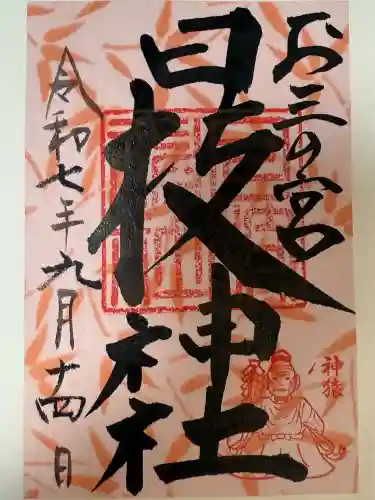 お三の宮
日枝神社
令和七年九月十四日
神猿